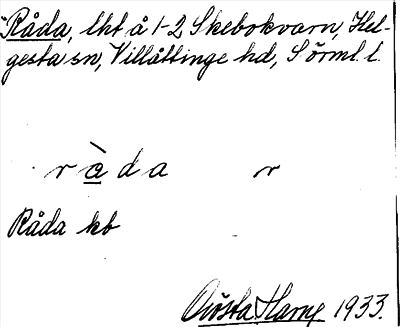 Råda, lht å 1-2 Skebokvarn, Hel-
gesta sn, Villåttinge hd, Sörml. l.
råda r
Råda kb
Gösta Harng 1933.